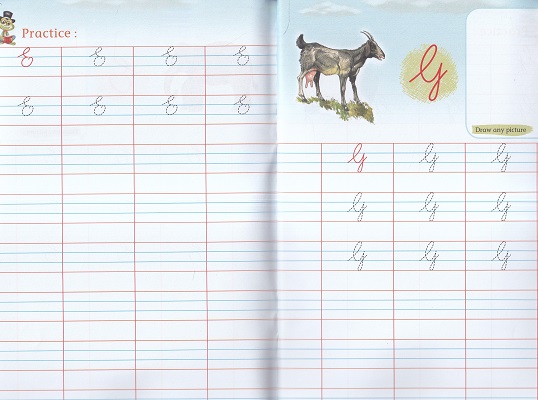 Practice :
E E E E
E E E E
G
Draw any picture
G G G
G G G
G G G